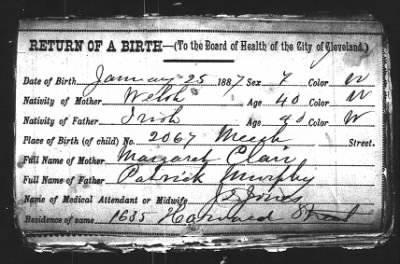 RETURN OF A BIRTH—(To the Board of Health of the City of Cleveland.)
Date of Birth January 25 1887 Sex F Color W
Nativity of Mother Welsh Age 40 Color W
Nativity of Father Irish Age Color W
Place of Birth (of child) No. 2067 Street.
Full Name of Mother Margaret Clair
Full Name of Father Patrick Murphy
Name of Medical Attendant or Midwife Jones
Residence of same 1635 Harvard Street